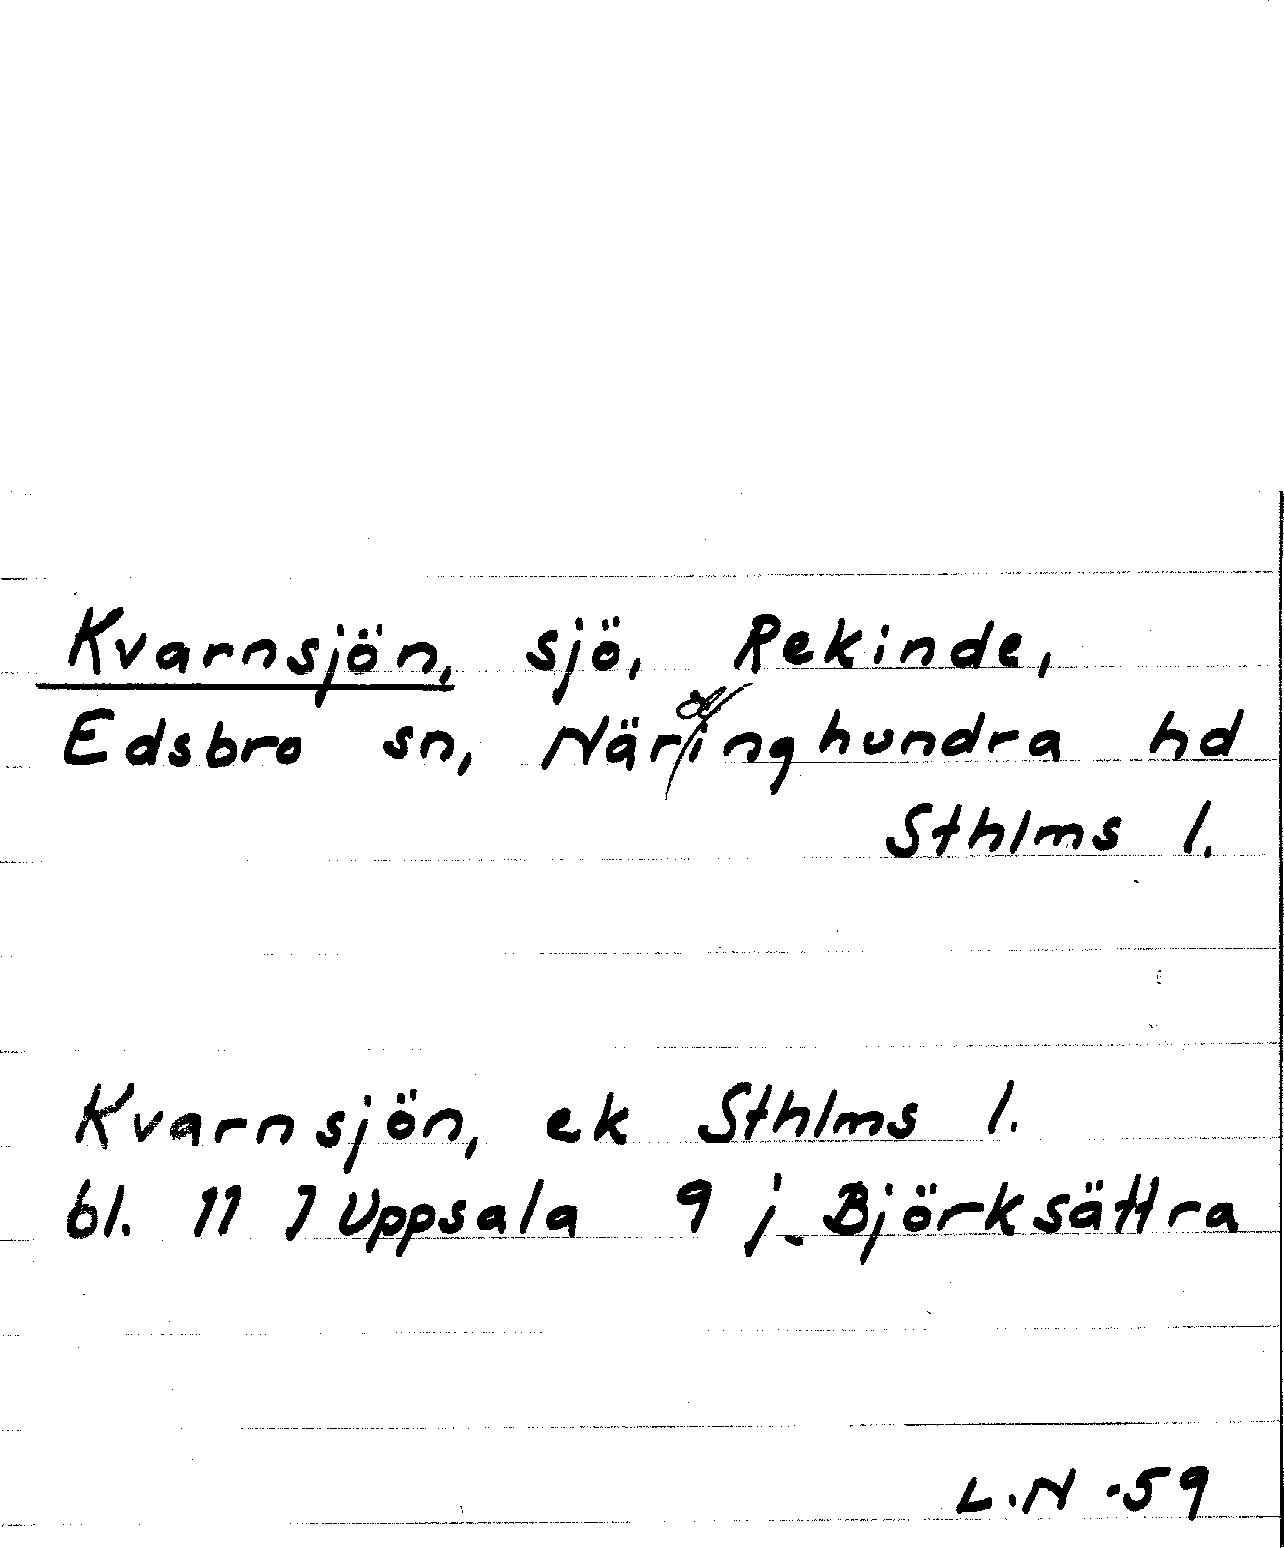 Kvarnsjön, sjö, Rekinde,
Edsbro sn, Näringhundra hd
Sthlms l.
Kvarnsjön, ek Sthlms l.
bl. 11 I Uppsala 9 j. Björksättra
L.N -59